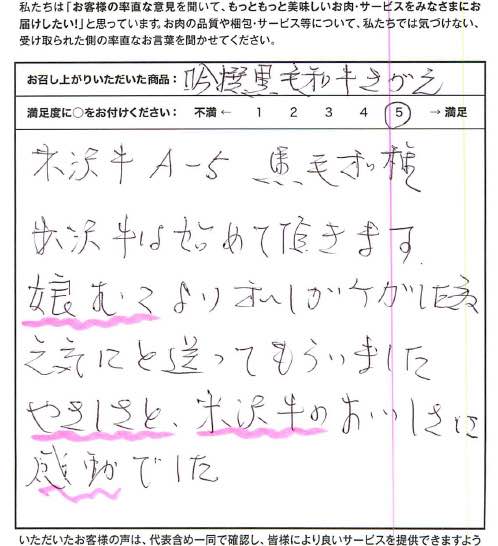 私たちは「お客様の率直な意見を聞いて、もっともっと美味しいお肉・サービスをみなさまにお
届けしたい!」と思っています。お肉の品質や梱包・サービス等について、私たちでは気づけない、
受け取られた側の率直なお言葉を聞かせてください。
お召し上がりいただいた商品: 吟撰黒毛和牛きがえ
満足度に○をお付けください: 不満 ← 1 2 3 4 5 → 満足
米沢牛 A-5 黒毛和種
米沢牛は始めて頂きます
娘むこより私しがケガした為
元気にと送ってもらいました
やさしさと、米沢牛のおいしさに
感動でした
いただいたお客様の声は、代表含め一同で確認し、皆様により良いサービスを提供できますよう